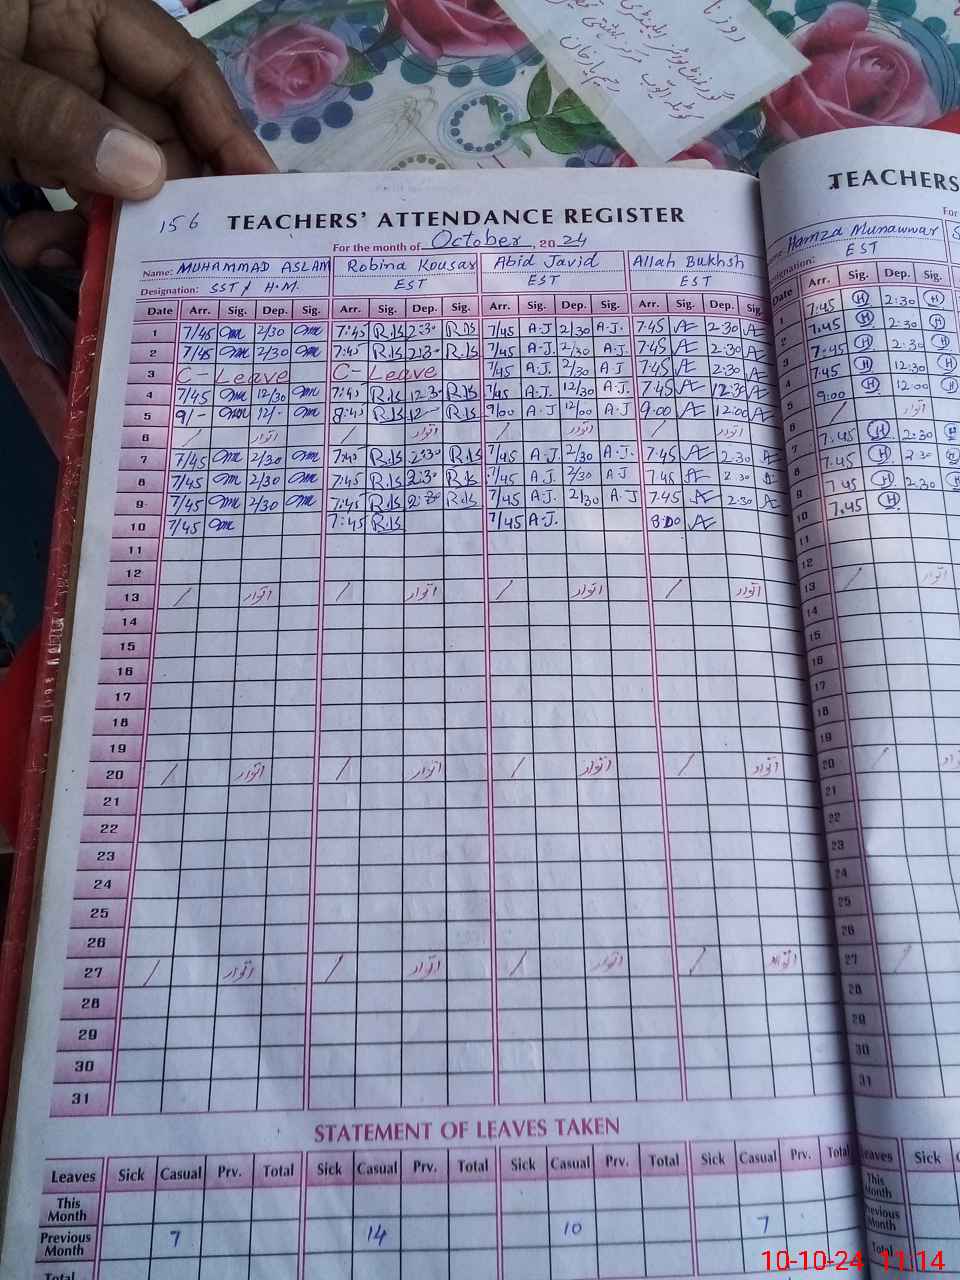 روزنا
گورنمنٹ بوائز ایلیمنٹری
رحیم یار خان
156 TEACHERS' ATTENDANCE REGISTER
For the month of October, 2024
Name: MUHAMMAD ASLAM Robina Kousar Abid Javid Allah Bukhsh
Designation: SST / H.M. EST EST EST
Date Arr. Sig. Dep. Sig. Arr. Sig. Dep. Sig. Arr. Sig. Dep. Sig. Arr. Sig. Dep. Sig.
1 7/45 2/30 7:45 R.K 2:30 R.K 7/45 A.J 2/30 A.J. 7:45 2.30
2 7/45 2/30 7:45 R.K 2:30 R.K 7/45 A.J. 2/30 A.J. 7:45 2:30
3 C-Leave C-Leave 7/45 A.J. 2/30 A.J 7:45 2:30
4 7/45 12/30 7:45 R.K 12:30 R.K 7/45 A.J. 12/30 A.J. 7:45 12:30
5 9/- 12/- 8:45 R.K 12- R.K 9/00 A.J 12/00 A.J 9:00 12:00
6 / اتوار / اتوار / اتوار / اتوار
7 7/45 2/30 7:45 R.K 2:30 R.K 7/45 A.J. 2/30 A.J. 7:45 2.30
8 7/45 2/30 7:45 R.K 2:30 R.K 7/45 A.J. 2/30 A.J 7:45 2.30
9 7/45 2/30 7:45 R.K 2:30 R.K 7/45 A.J. 2/30 A.J 7:45 2:30
10 7/45 7:45 R.K 7/45 A.J. 8:00
11
12
13 / اتوار / اتوار / اتوار / اتوار
14
15
16
17
18
19
20 / اتوار / اتوار / اتوار / اتوار
21
22
23
24
25
26
27 / اتوار / اتوار / اتوار / اتوار
28
29
30
31
STATEMENT OF LEAVES TAKEN
Leaves Sick Casual Prv. Total Sick Casual Prv. Total Sick Casual Prv. Total Sick Casual Prv. Total
This Month
Previous Month 7 14 10 7
Total
TEACHERS
For
Hamza Munawwar
Designation: EST
Date Arr. Sig. Dep. Sig.
1 7:45 H 2:30 H
2 7.45 H 2:30 H
3 7:45 H 2:30 H
4 7:45 H 12:30 H
5 9:00 H 12:00 H
6 / اتوار
7 7.45 H 2:30 H
8 7.45 H 2 30 H
9 7 45 H 2.30 H
10 7.45 H
11
12
13 / اتوار
14
15
16
17
18
19
20 /
21
22
23
24
25
26
27 /
28
29
30
31
Leaves Sick
This Month
Previous Month
Total
10-10-24 11:14